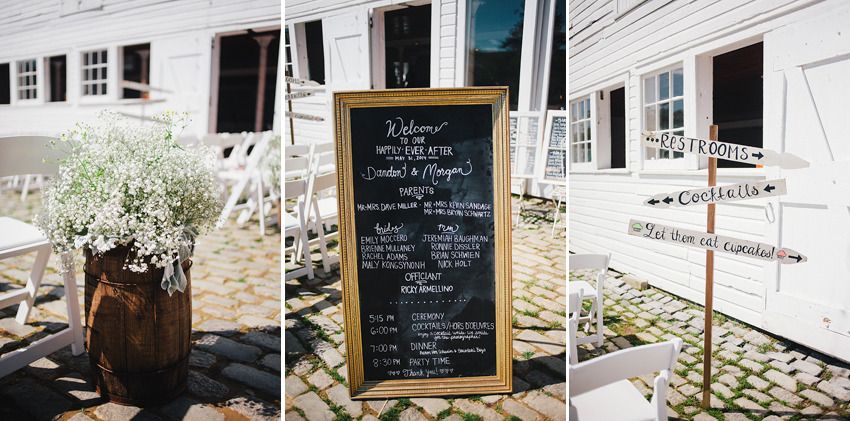 Welcome
TO OUR
HAPPILY · EVER · AFTER
MAY 31, 2014
Landon & Morgan
PARENTS
MR+MRS DAVE MILLER · MR+MRS KEVIN SANDAGE
MR+MRS BRYAN SCHWARTZ
brides men
EMILY MOCCERO JEREMIAH BAUGHMAN
BRIENNE MULLANEY RONNIE DISSLER
RACHEL ADAMS BRIAN SCHWIEN
MALY KONGSYNONH NICK HOLT
OFFICIANT
RICKY ARMELLINO
5:15 PM CEREMONY
6:00 PM COCKTAILS//HORS D'OEUVRES
enjoy a cocktail while we smile
for the photographer!
7:00 PM DINNER
8:30 PM PARTY TIME
Thank you!
RESTROOMS
Cocktails
Let them eat cupcakes!